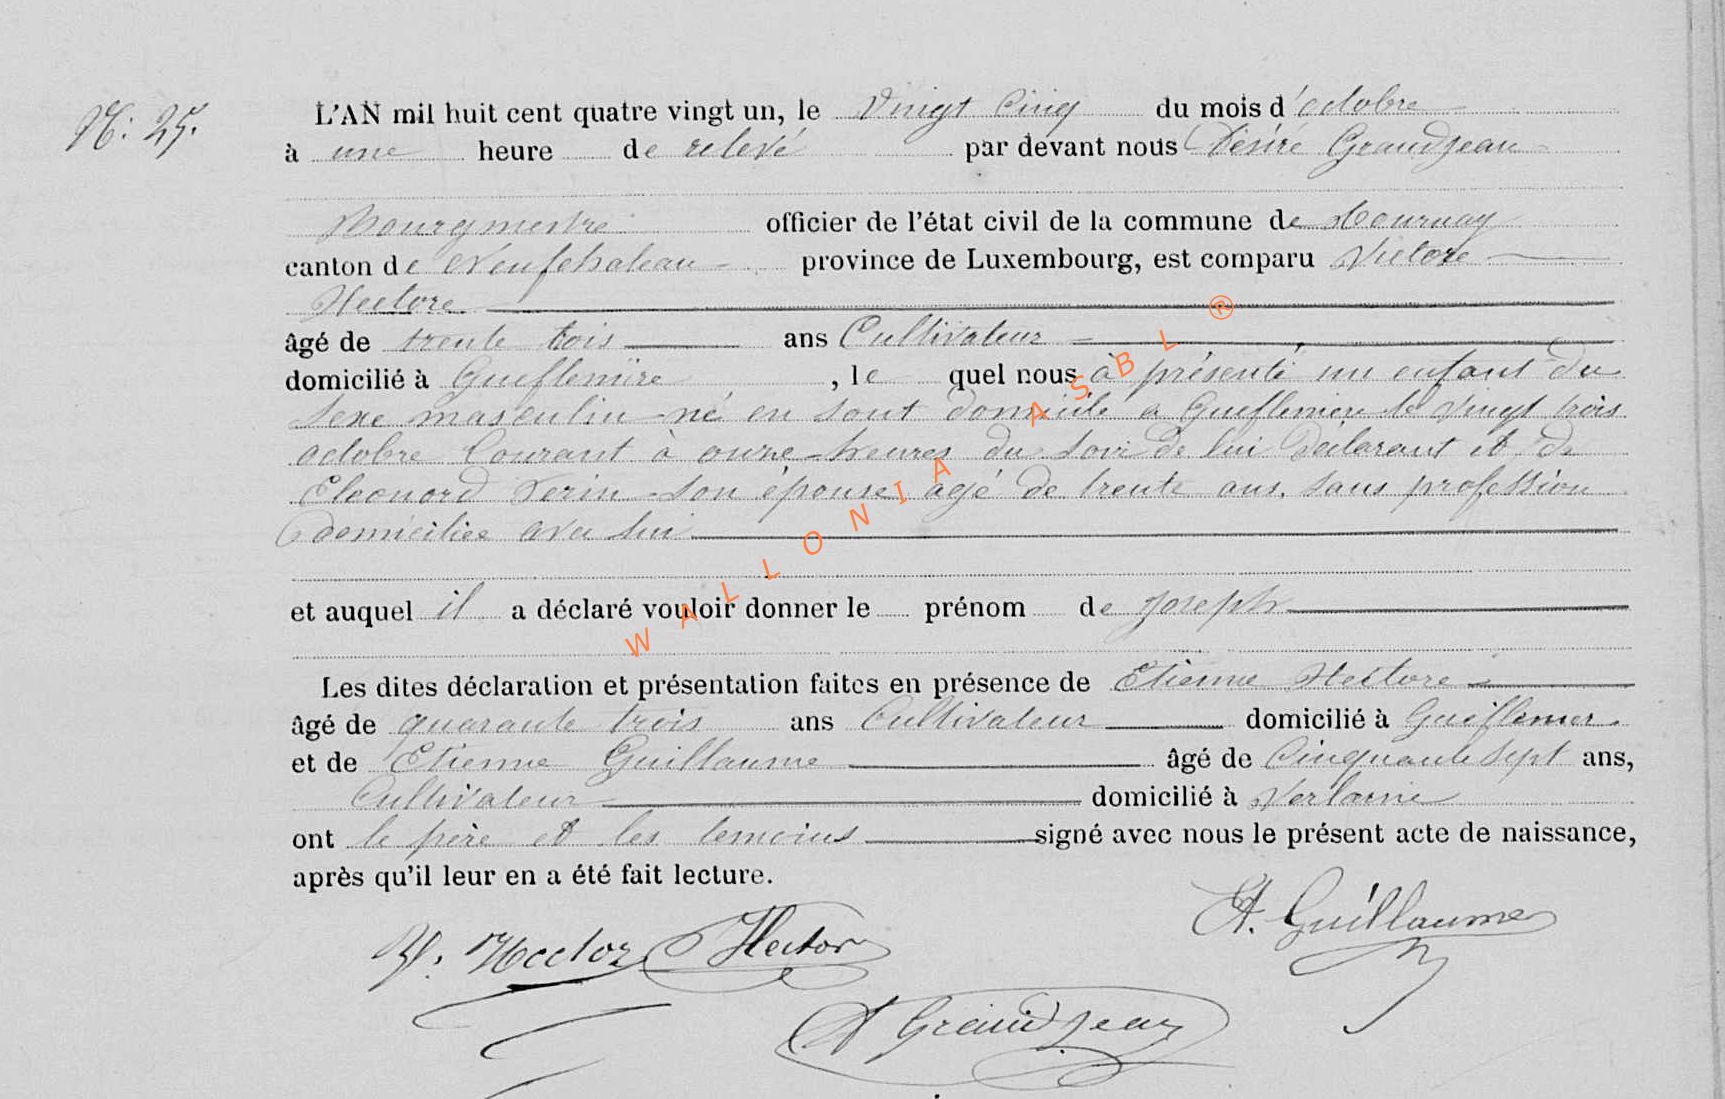 N: 25.
L'AN mil huit cent quatre vingt un, le Vingt Cinq du mois d'octobre
à une heure de relevé par devant nous Désiré Grandjean
Bourgmestre officier de l'état civil de la commune de Tournay
canton de Neufchateau province de Luxembourg, est comparu Victore
Hectore
âgé de trente tois ans Cultivateur
domicilié à Gueflemire, le quel nous à présenté un enfant du
sexe masculin né en sont domicile a le vingt trois
octobre Courant à onze heures du soir de lui Déclarant et de
Eleonord Perin son épouse agé de trente ans. sans profession
domiciliée avec lui
et auquel il a déclaré vouloir donner le prénom de Joseph
Les dites déclaration et présentation faites en présence de Etienne Hectore
âgé de quarante trois ans Cultivateur domicilié à
et de Etienne Guillaume âgé de Cinquante sept ans,
Cultivateur domicilié à Verlaine
ont le père et les temoins signé avec nous le présent acte de naissance,
après qu'il leur en a été fait lecture.
V. Hector Hector Et. Guillaume
D Grandjean
WALLONIA ASBL ®